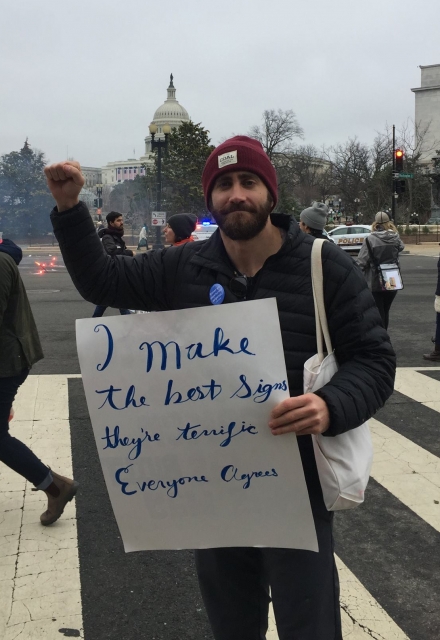 I make
the best signs
they're terrific
Everyone Agrees
COAL
POLICE